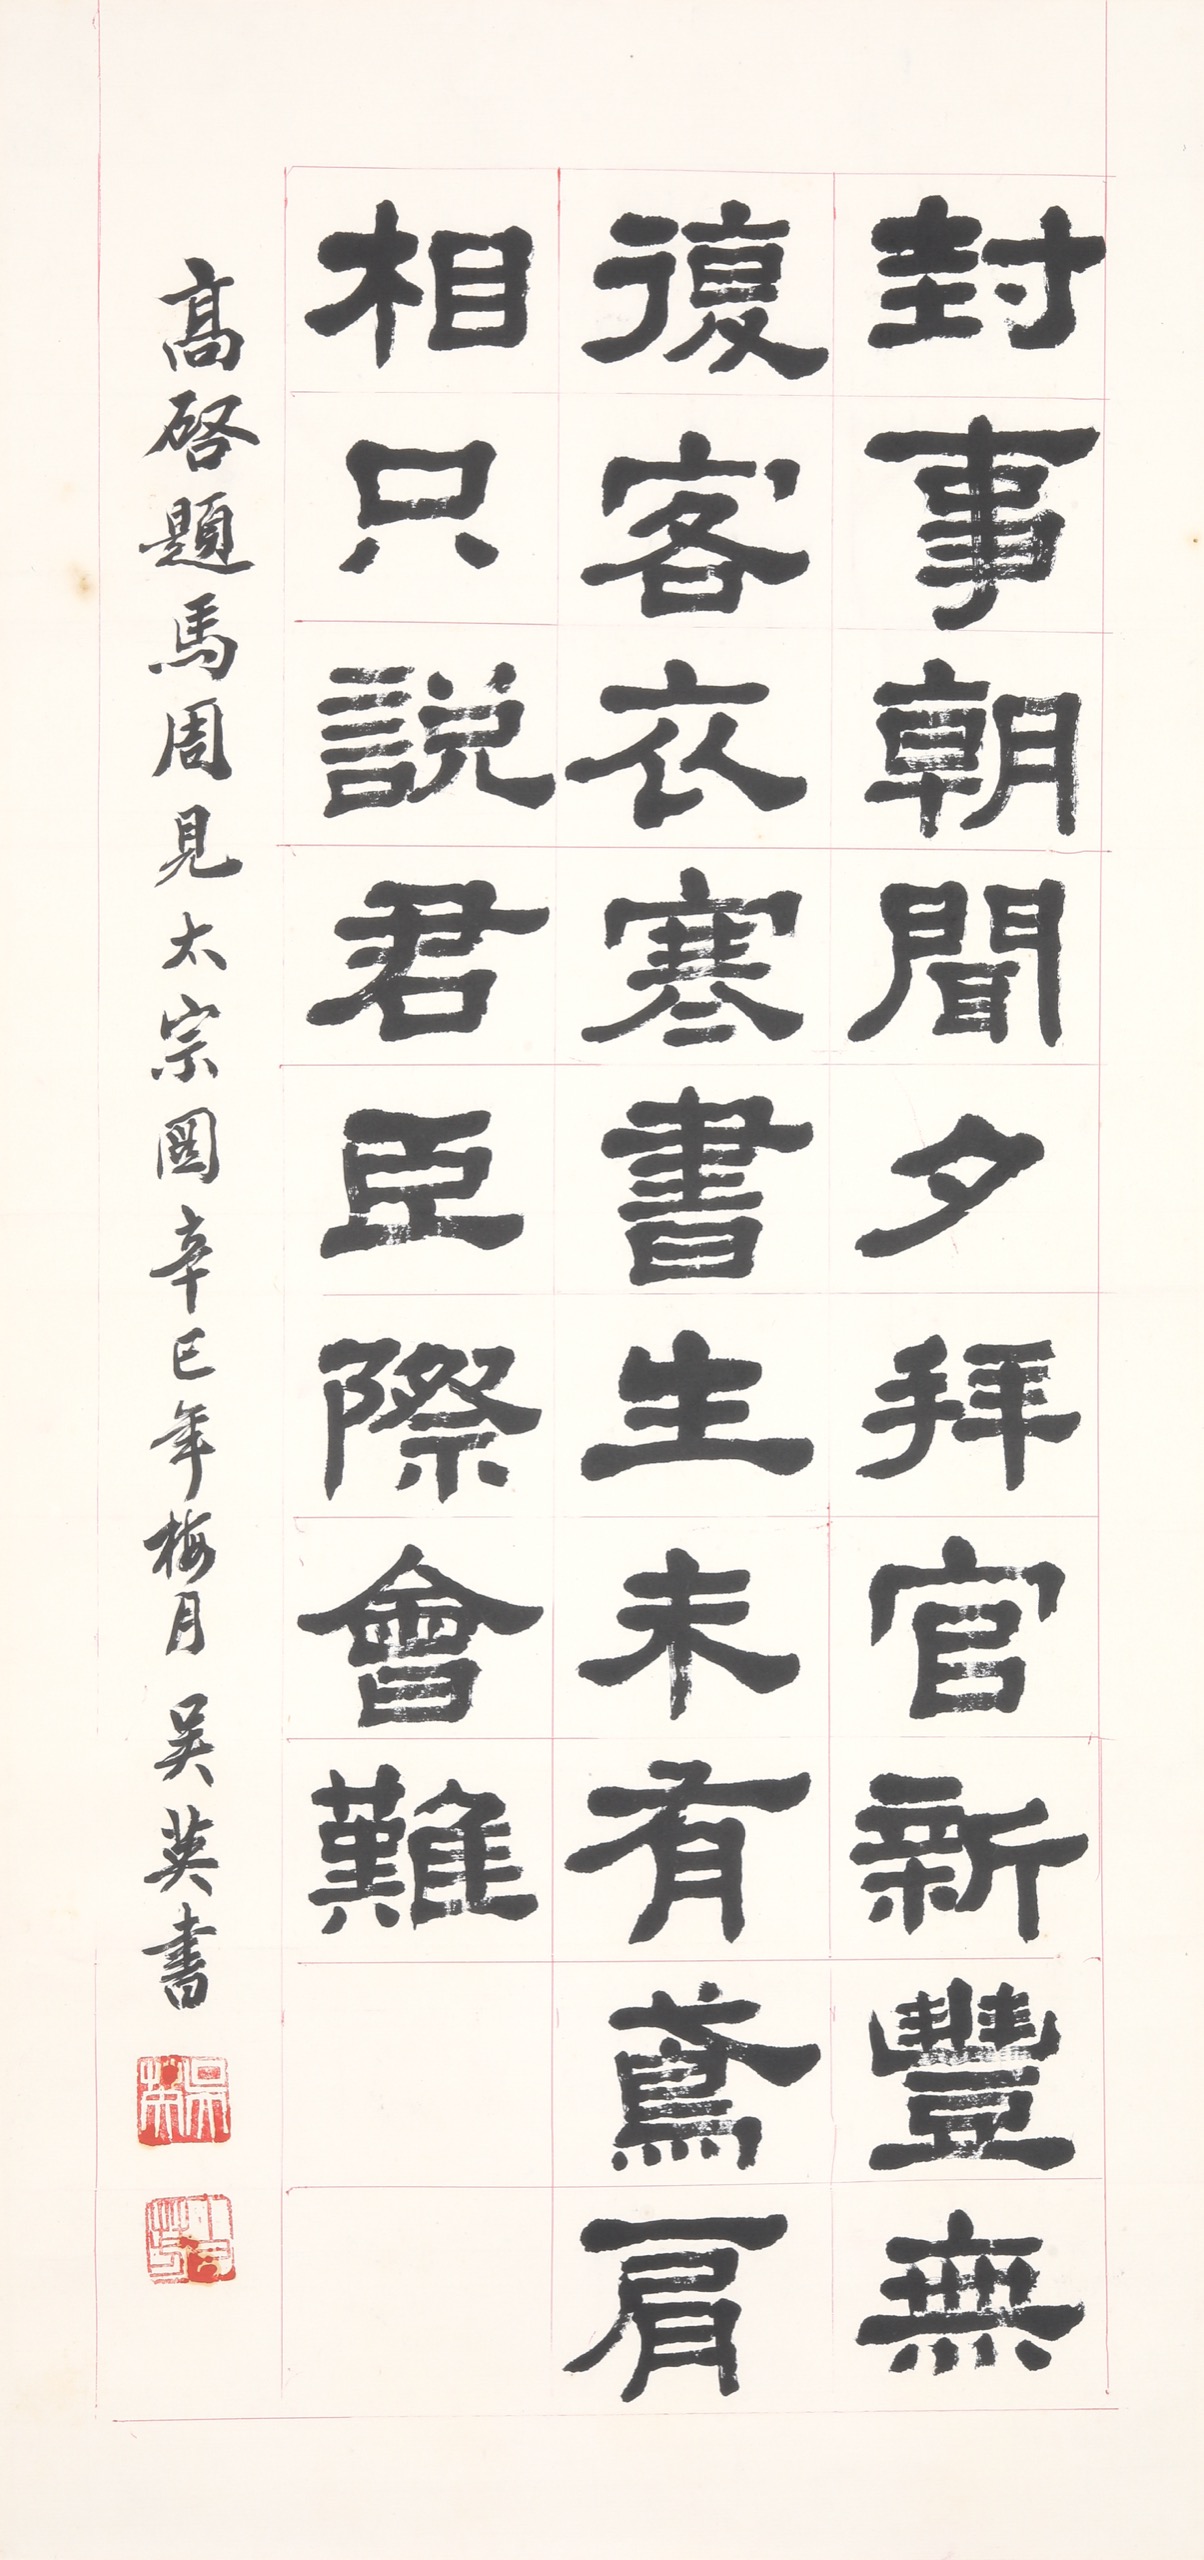 封事朝聞夕拜官新豐無
復客衣寒書生未有鳶肩
相只說君臣際會難
高啓題馬周見太宗圖辛巳年梅月吳英書